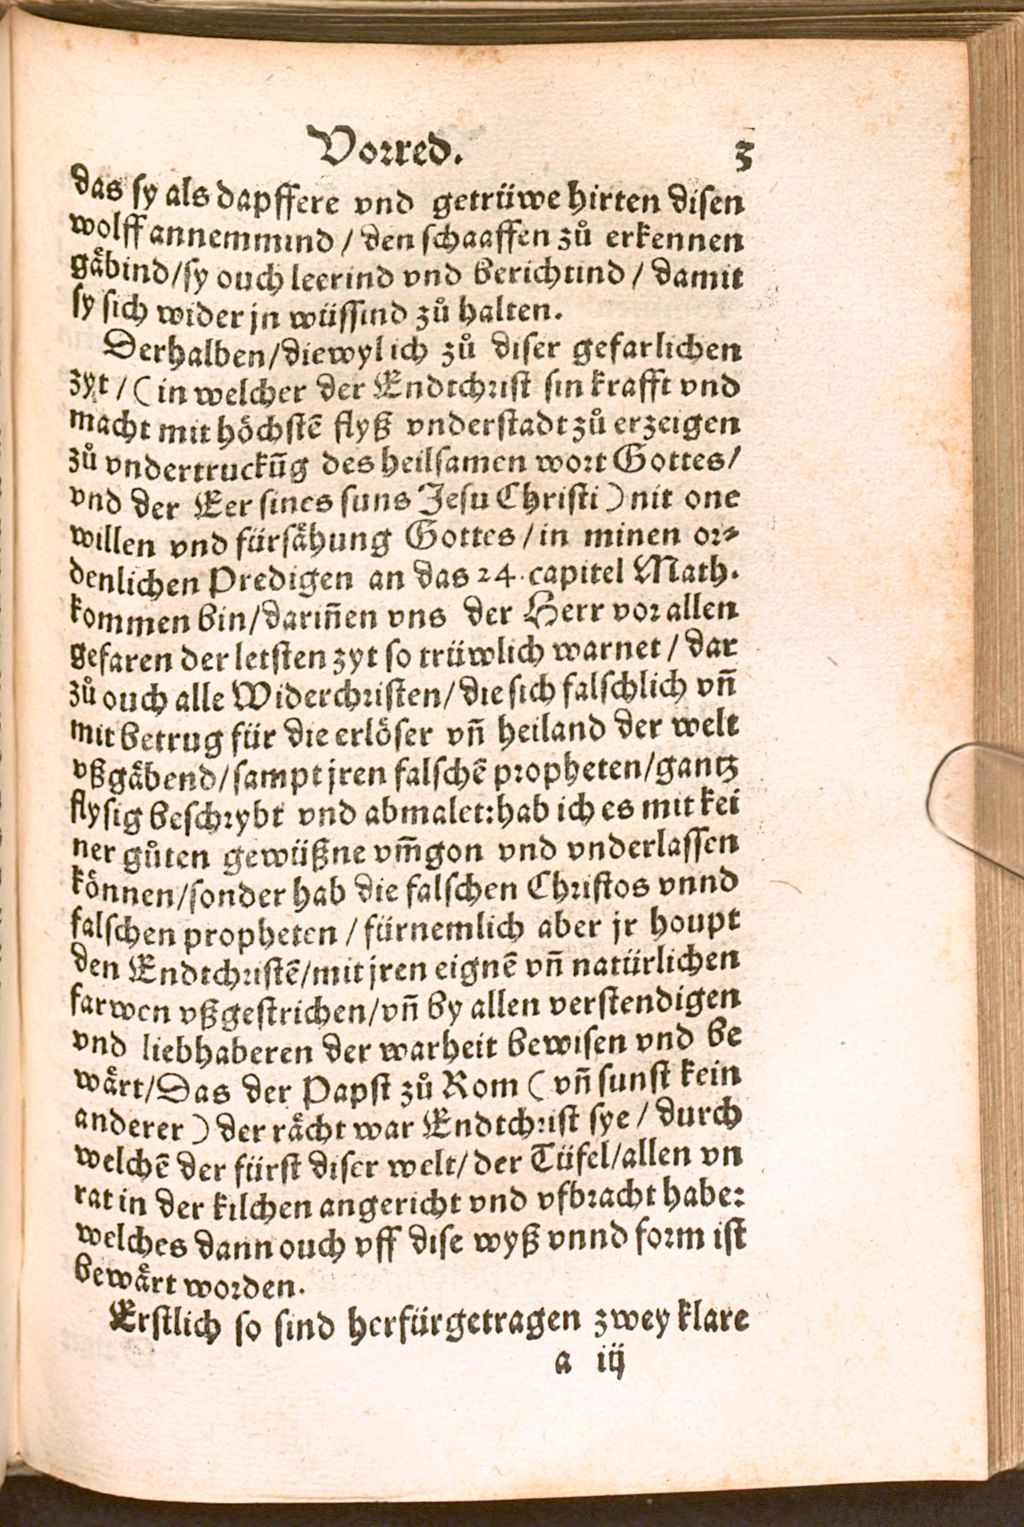 Vorred. 3
das sy als dapffere vnd getrüwe hirten disen
wolff annemmind / den schaaffen zů erkennen
gåbind/sy ouch leerind vnd berichtind / damit
sy sich wider jn wüssind zů halten.
Derhalben/diewyl ich zů diser gefarlichen
zyt / (in welcher der Endtchrist sin krafft vnd
macht mit höchstẽ flyß vnderstadt zů erzeigen
zů vndertruckũg des heilsamen wort Gottes/
vnd der Eer sines suns Jesu Christi) nit one
willen vnd fürsåhung Gottes / in minen or⸗
denlichen Predigen an das 24. capitel Math.
kommen bin/dariñen vns der Herr vor allen
gefaren der letsten zyt so trüwlich warnet / dar
zů ouch alle Widerchristen/die sich falschlich vñ
mit betrug für die erlöser vñ heiland der welt
vßgåbend/sampt jren falschẽ propheten/gantz
flysig beschrybt vnd abmalet:hab ich es mit kei
ner gůten gewüßne vm̃gon vnd vnderlassen
können/sonder hab die falschen Christos vnnd
falschen propheten / fürnemlich aber jr houpt
den Endtchristẽ/mit jren eignẽ vñ natürlichen
farwen vßgestrichen/vñ by allen verstendigen
vnd liebhaberen der warheit bewisen vnd be
wårt/Das der Papst zů Rom ( vñ sunst kein
anderer ) der råcht war Endtchrist sye / durch
welchẽ der fürst diser welt/der Tüfel/allen vn
rat in der kilchen angericht vnd vfbracht habe:
welches dann ouch vff dise wyß vnnd form ist
bewårt worden.
Erstlich so sind herfürgetragen zwey klare
a iij